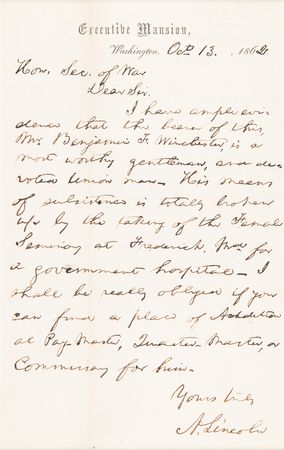 Executive Mansion,
Washington, Octr 13. , 1862.
Hon. Sec. of War
Dear Sir.
I have ample evi-
dence that the bearer of this,
Mr. Benjamin F. Winchester, is a
most worthy gentleman, and de-
voted Union man— His means
of subsistence is totally broken
up by the taking of the Female
Seminary at Frederick, Md for
a government hospital— I
shall be really obliged if you
can find a place of Additional
Pay-Master, Quarter-Master, or
Commissary for him.
Yours truly
A. Lincoln